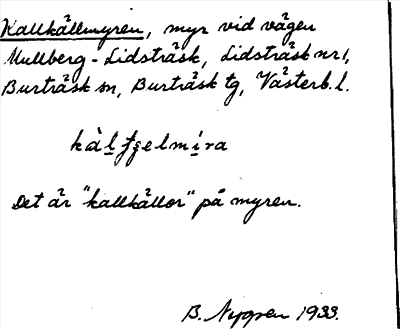 Kallkällmyren, myr vid vägen
Mullberg - Lidsträsk, Lidsträsk nr 1,
Burträsk sn, Burträsk tg, Västerb. l.
Det är "kallkällor" på myren.
B. Nygren 1933.